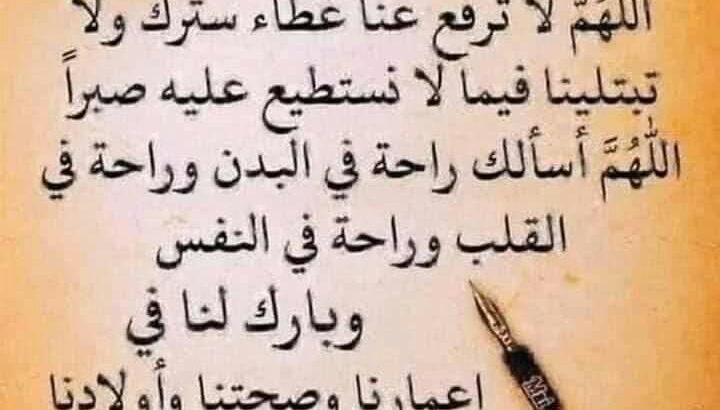 اللهم لا ترفع عنا غطاء سترك ولا
تبتلينا فيما لا نستطيع عليه صبراً
اللهُمَّ أسألك راحة في البدن وراحة في
القلب وراحة في النفس
وبارك لنا في
اعمارنا وصحتنا وأولادنا